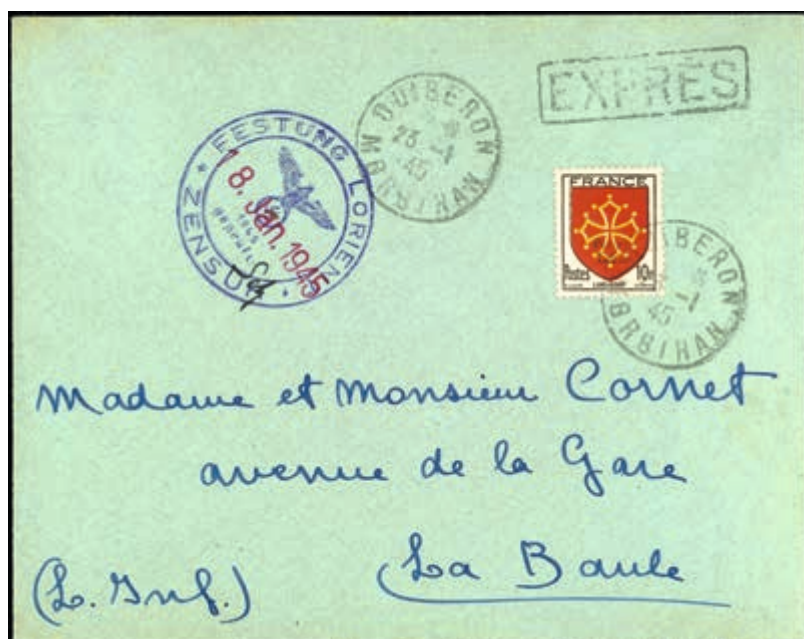 EXPRÈS
QUIBERON
23 -1
45
MORBIHAN
FESTUNG LORIENT
* ZENSUR *
18. Jan. 1945
FRANCE
Postes 10F
LANGUEDOC
QUIBERON
-1
45
MORBIHAN
Madame et Monsieur Cornet
avenue de la Gare
La Baule
(L. Inf.)